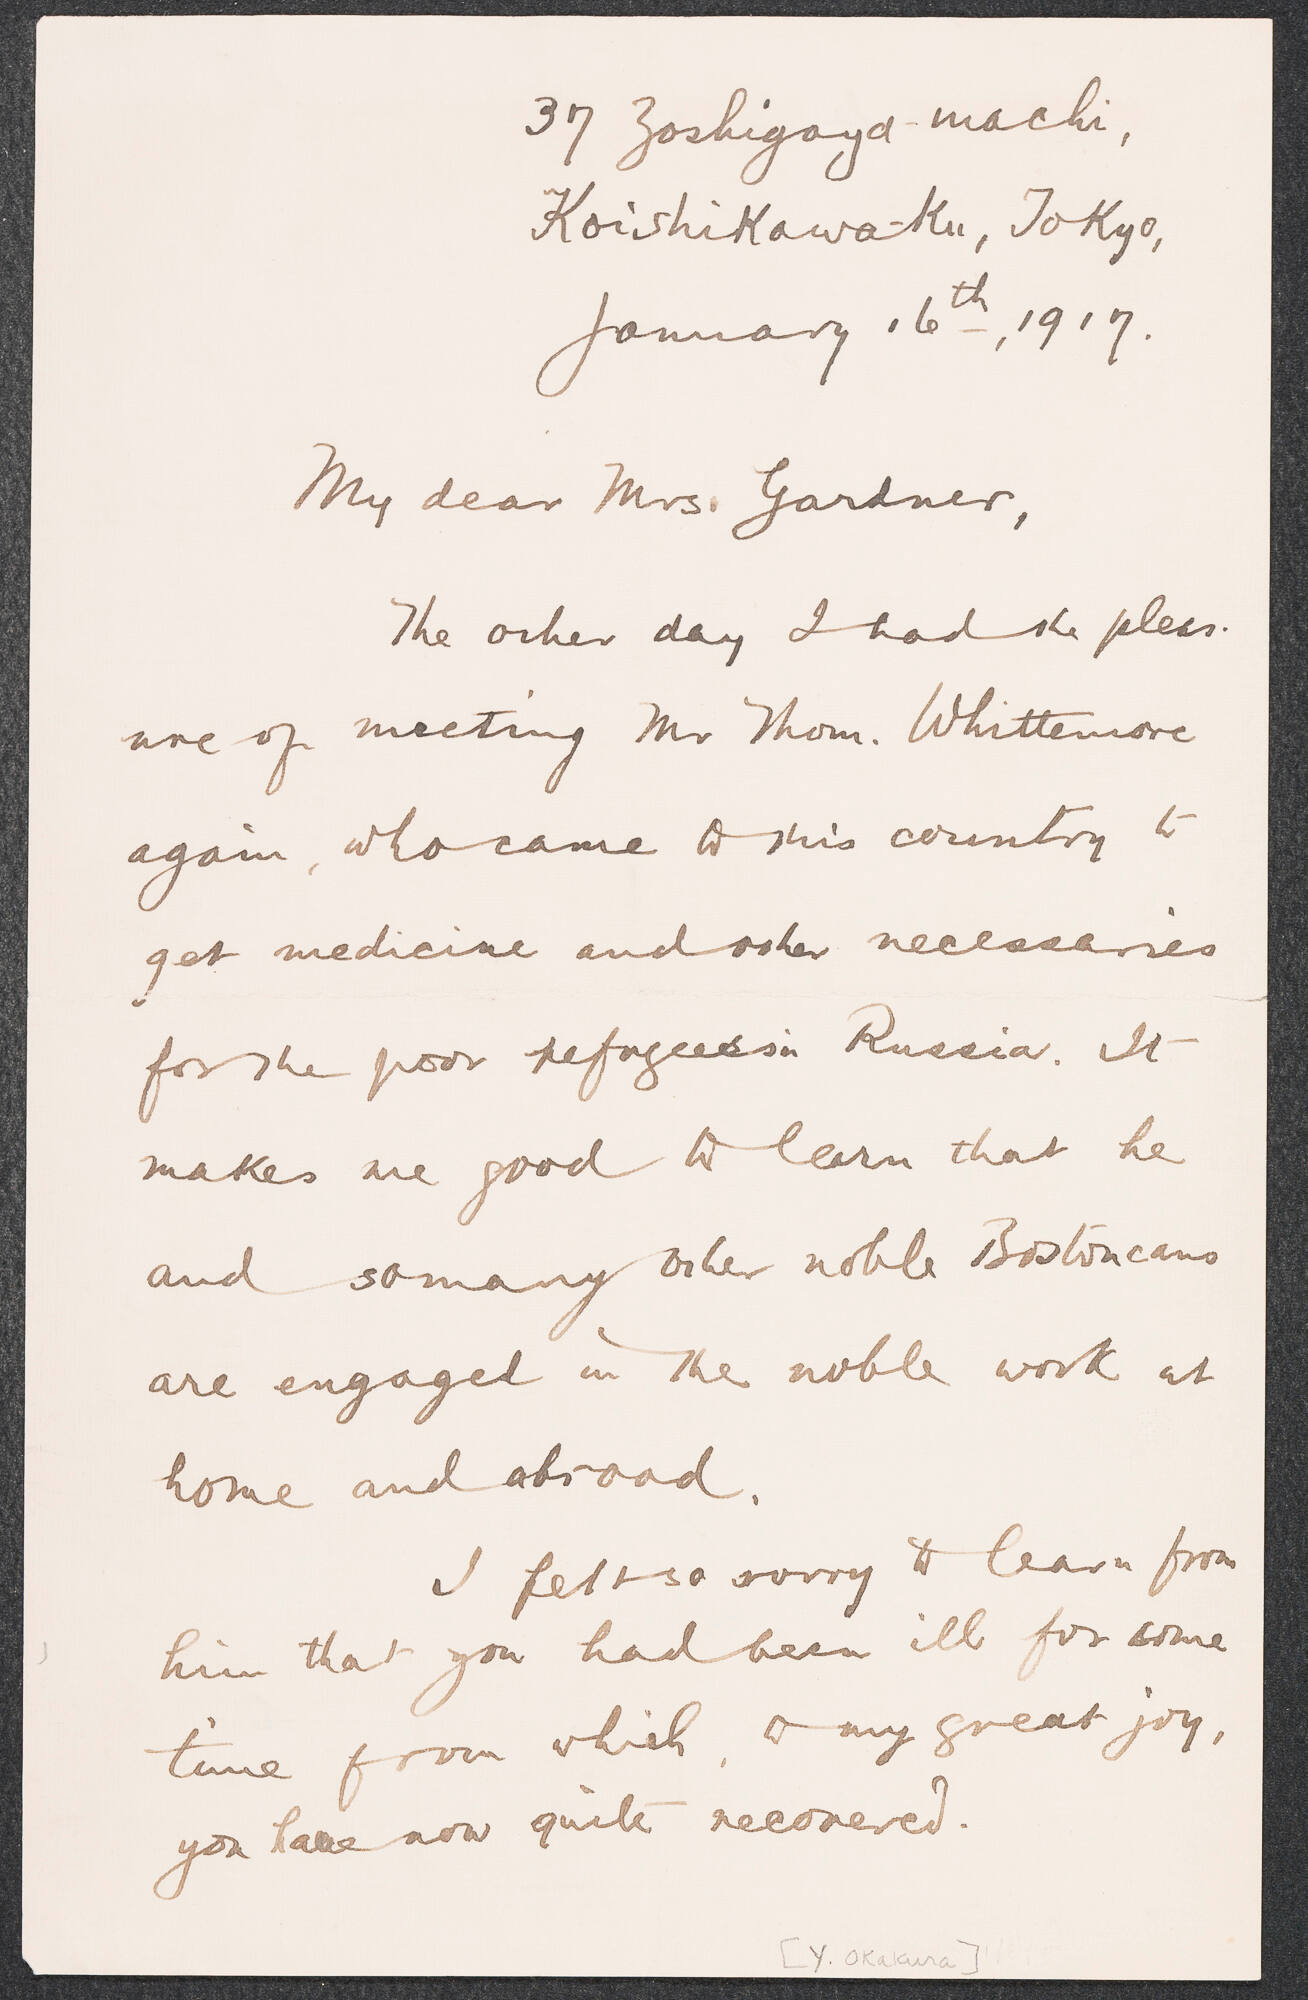 37 Zoshigaya-machi,
Koishikawa-Ku, Tokyo,
January 16th, 1917.
My dear Mrs. Gardner,
The other day I had the pleas-
ure of meeting Mr Thom. Whittemore
again, who came to this country to
get medicine and other necessaries
for the poor refugees in Russia. It
makes me good to learn that he
and so many other noble Bostoneans
are engaged in the noble work at
home and abroad.
I felt so sorry to learn from
him that you had been ill for some
time from which, to my great joy,
you have now quite recovered.
[Y. Okakura]